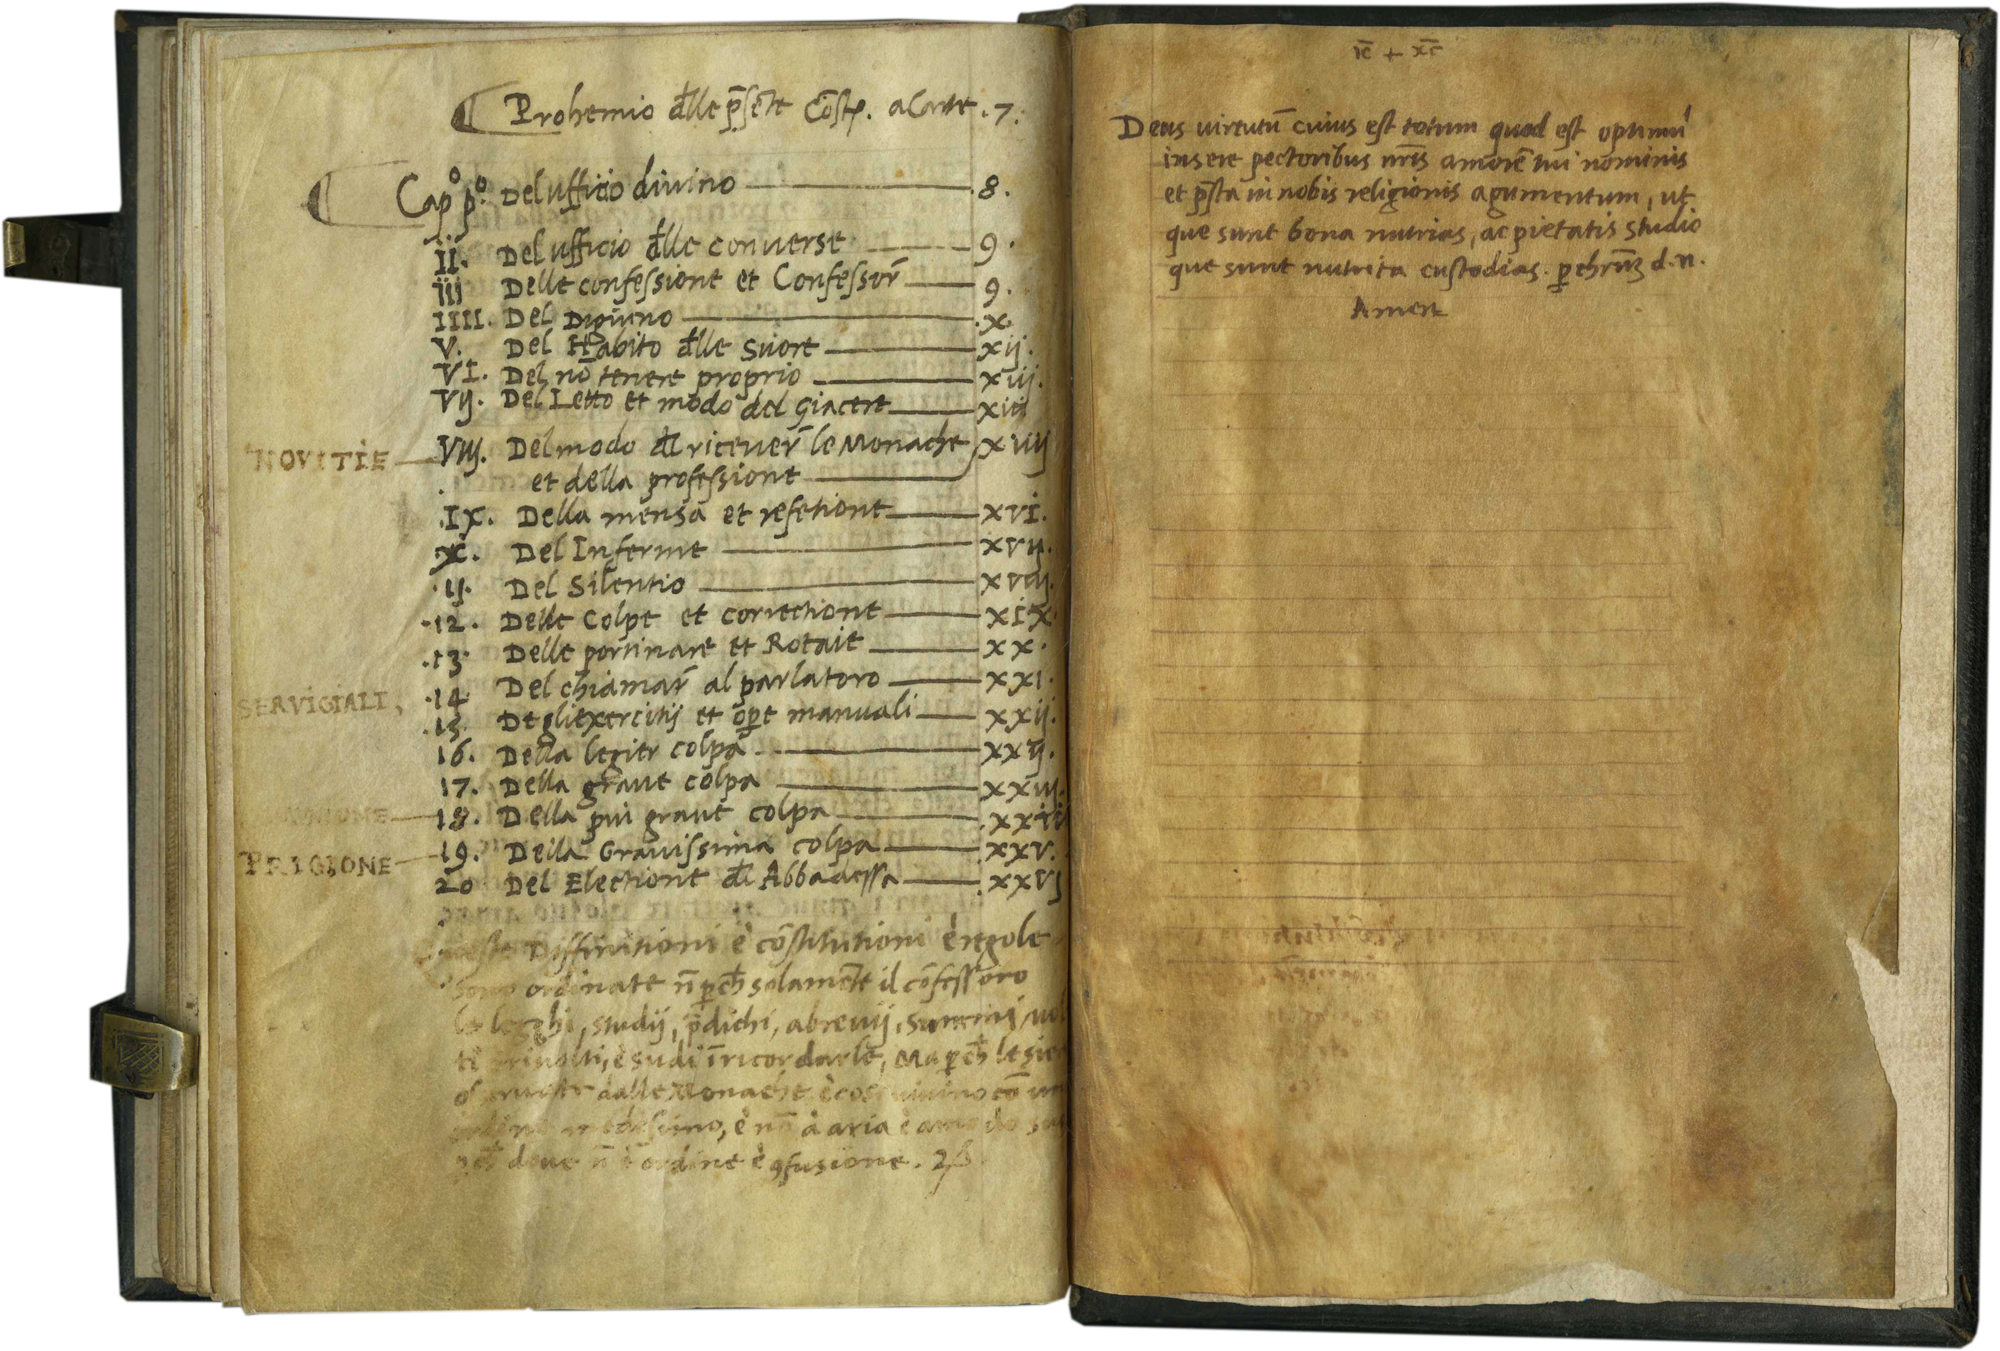 Prohemio d̄lle p̄sēte Cōst. a Carte .7.
Cap.º pº. Del ufficio diuino 8.
II. Del ufficio d̄lle conuerse 9.
iij Delle confessione et Confessor̄ 9.
IIII. Del Digiuno .X.
V. Del Habito d̄lle Suore xij.
VI. Del nō tenere proprio xiij.
Vij. Del Letto et modo del giacere xiii
NOVITIE Viij. Del modo d̄l riceuer̄ le Monache
et della professione
.IX. Della mensa et refetione XVI.
X. Del Inferme xvij.
.11. Del Silentio
.12. Delle Colpe et correctione XIX.
.13. Delle portinare et Rotaie XX.
SERVIGIALI, .14 Del chiamar̄ al parlatoro XXI.
.15. Degli exercitij et opere manuali xxij.
16. Della legier colpa
17. Della graue colpa
18. Della piu graue colpa
PRIGIONE 19. Della Grauissima colpa XXV.
20 Del Electione d̄l Abbadessa
Diffinitioni è cōstitutioni è regole
ordinate n̄ p̱ch̄ solamēte il cōfessoro
le legghi, studij, p̄dichi, abreuij, summi
è studi ī ricordarle, Ma p̱ch̄ le
dalle Monache è cosi uiuino cō
medesimo, è nō à aria è
doue n̄ è ordine è ꝯfusione.
ic̄ + xc̄
Deus uirtutū cuius est totum quod est optimū
insere pectoribus nr̄is amorē tui nominis
et p̄sta in nobis religionis agumentum, ut
que sunt bona nutrias, ac pietatis studio
que sunt nutrita custodias. d.n.
Amen